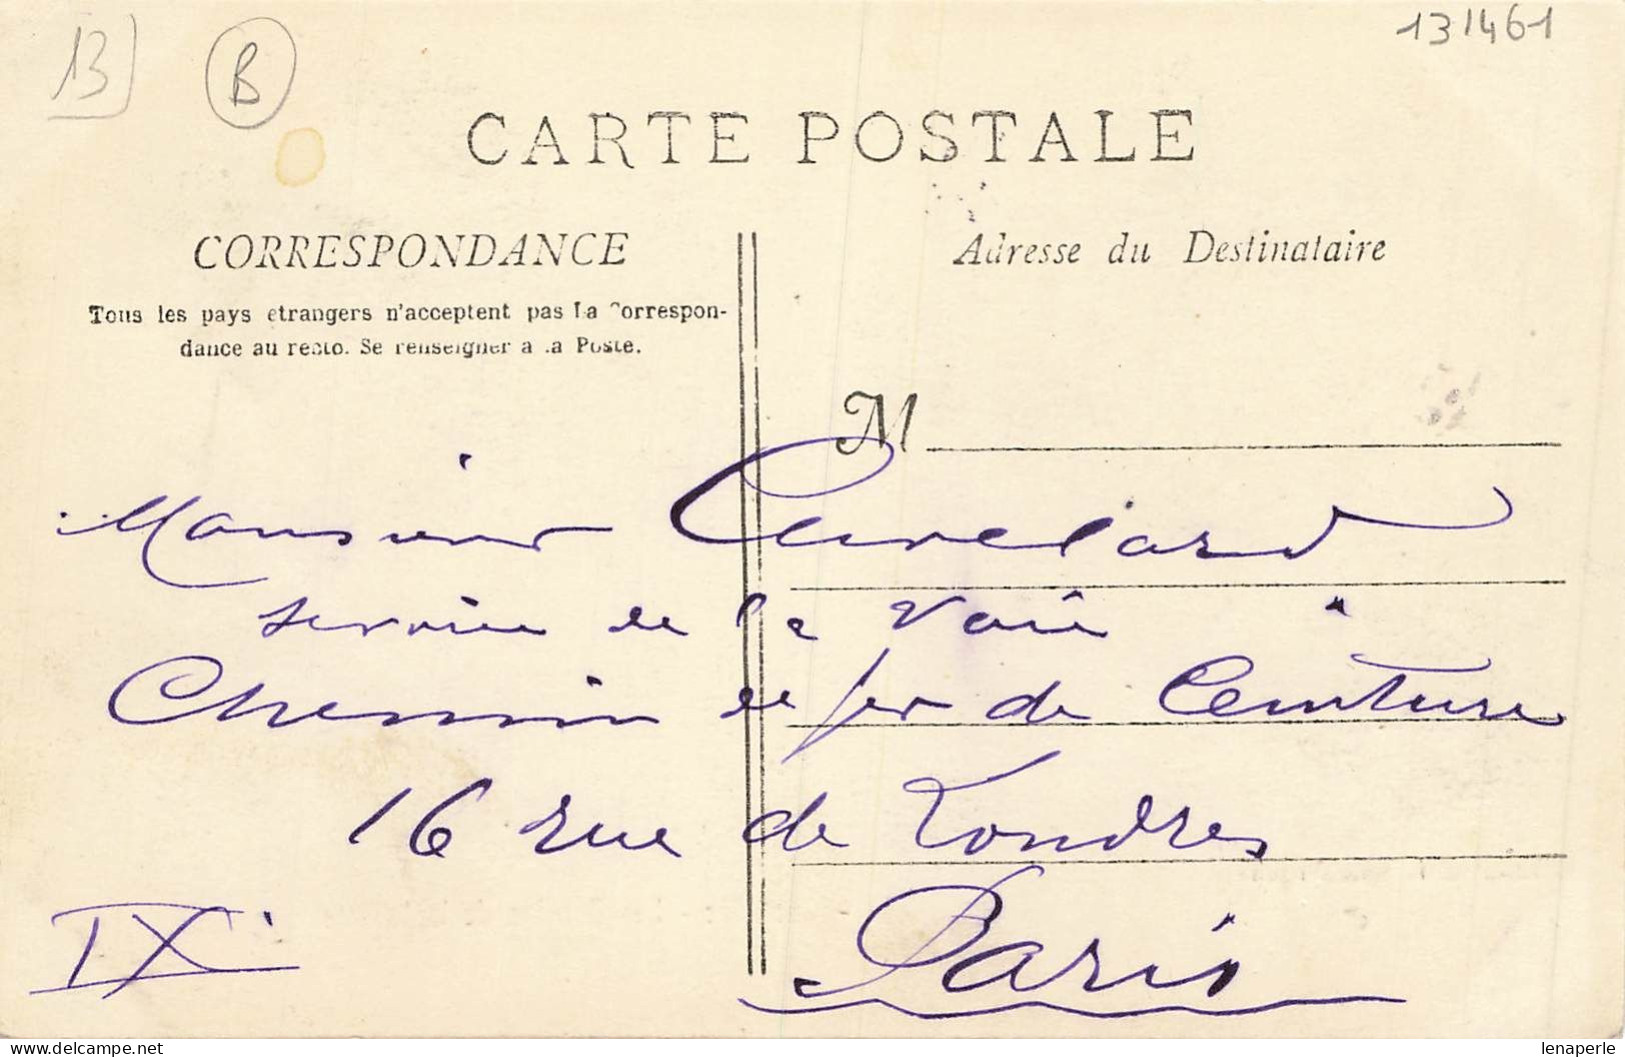 13 B 131461
CARTE POSTALE
CORRESPONDANCE
Adresse du Destinataire
Tous les pays etrangers n'acceptent pas La Correspon-
dance au recto. Se renseigner a la Poste.
M
Monsieur Cuvelard
service de la Voie
Chemin de fer de Ceinture
16 rue de Londres
IXe Paris
lenaperle